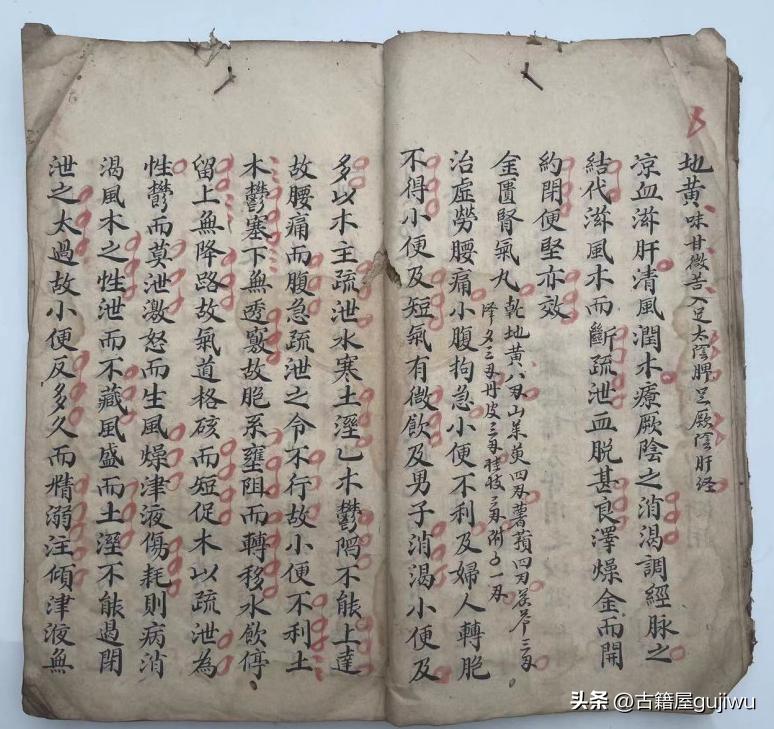 地黃味甘微苦入足太陰脾足厥陰肝經
凉血滋肝清風潤木療厥陰之消渴調經脉之
結代滋風木而斷疏泄血脱甚良澤燥金而開
約閉便堅亦效
金匱腎氣丸 乾地黃八刄山茱萸四刄薯蕷四刄茯苓三刄
澤夕三刄丹皮三刄桂枝一刄附子一刄
治虛勞腰痛小腹拘急小便不利及婦人轉胞
不得小便及短氣有微飲及男子消渴小便反
多以木主疏泄水寒土溼乙木鬱陷不能上達
故腰痛而腹急疏泄之令不行故小便不利土
木鬱塞下無透竅故胞系壅阻而轉移水飲停
留上無降路故氣道格硋而短促木以疏泄為
性鬱而莫泄激怒而生風燥津液傷耗則病消
渴風木之性泄而不藏風盛而土溼不能遏閉
泄之太過故小便反多久而精溺注傾津液無
头条 @古籍屋gujiwu